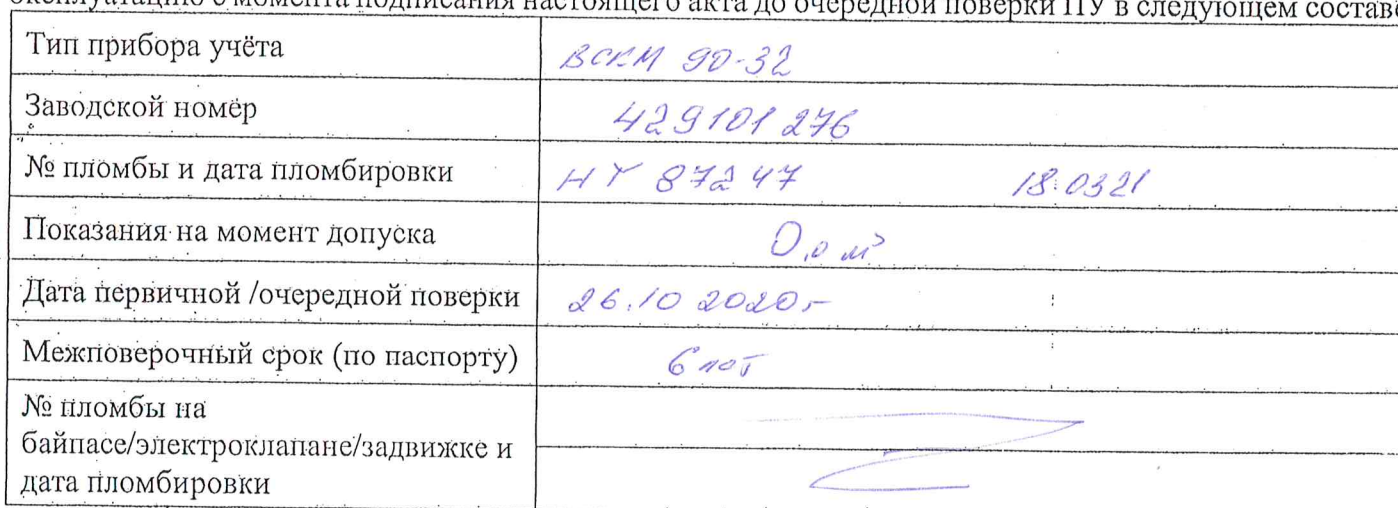 эксплуатацию с момента подписания настоящего акта до очередной поверки ПУ в следующем составе
Тип прибора учёта ВСКМ 90-32
Заводской номер 429101276
№ пломбы и дата пломбировки НУ 87247 18.0321
Показания на момент допуска 0,0 м³
Дата первичной /очередной поверки 26.10 2020г
Межповерочный срок (по паспорту) 6 лет
№ пломбы на
байпасе/электроклапане/задвижке и
дата пломбировки